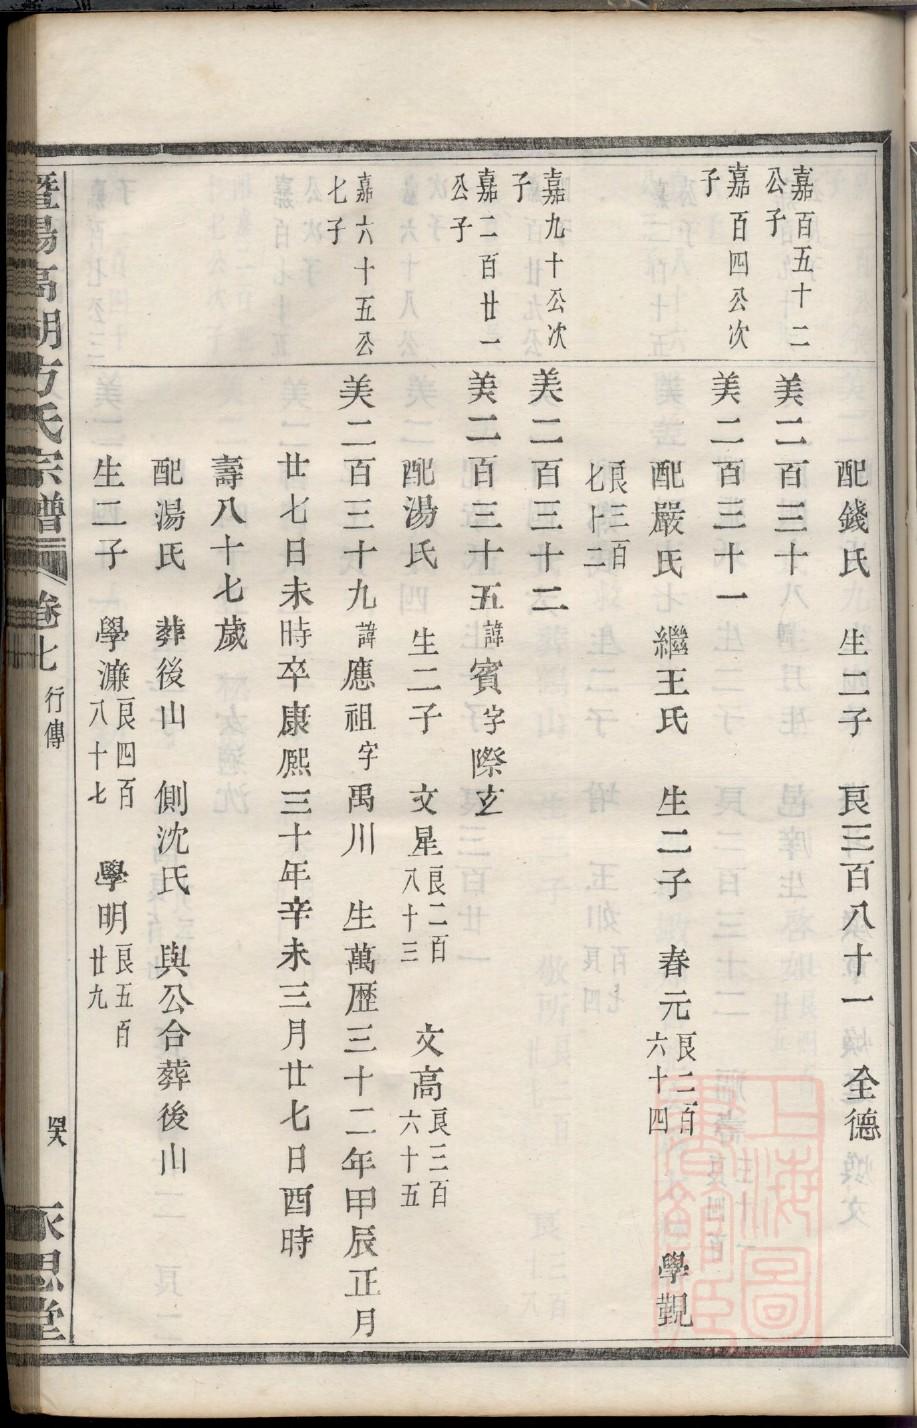 配錢氏　生二子　良三百八十一　全德
嘉百五十二公子　美二百三十
嘉百四公次子　美二百三十一
配嚴氏　繼王氏　生二子　春元良二百六十四　學觀
良三百七十二
嘉九十公次子　美二百三十二
嘉二百廿一公子　美二百三十五諱賓字際玄
配湯氏　生二子　文星良二百八十三　文高良三百六十五
嘉六十五公七子　美二百三十九諱應祖字禹川　生萬歷三十二年甲辰正月
廿七日未時卒康熈三十年辛未三月廿七日酉時
壽八十七歲
配湯氏　葬後山　側沈氏　與公合葬後山
生二子　學濂良四百八十七　學明良五百廿九
暨陽高湖方氏宗譜　卷七　行傳　永思堂
上海圖書館藏